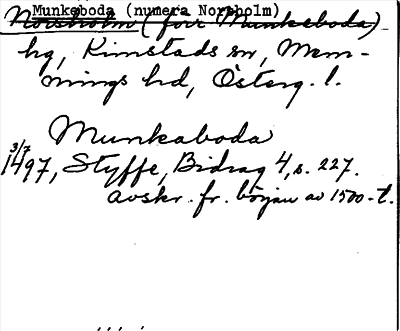 Munkeboda (numera Norsholm)
Norsholm (förr Munkeboda)
hg, Kimstads sn, Mem-
mings hd, Österg. l.
Munkaboda
3/7
1497, Styffe, Bidrag 4, s. 227.
avskr. fr. början av 1500-t.